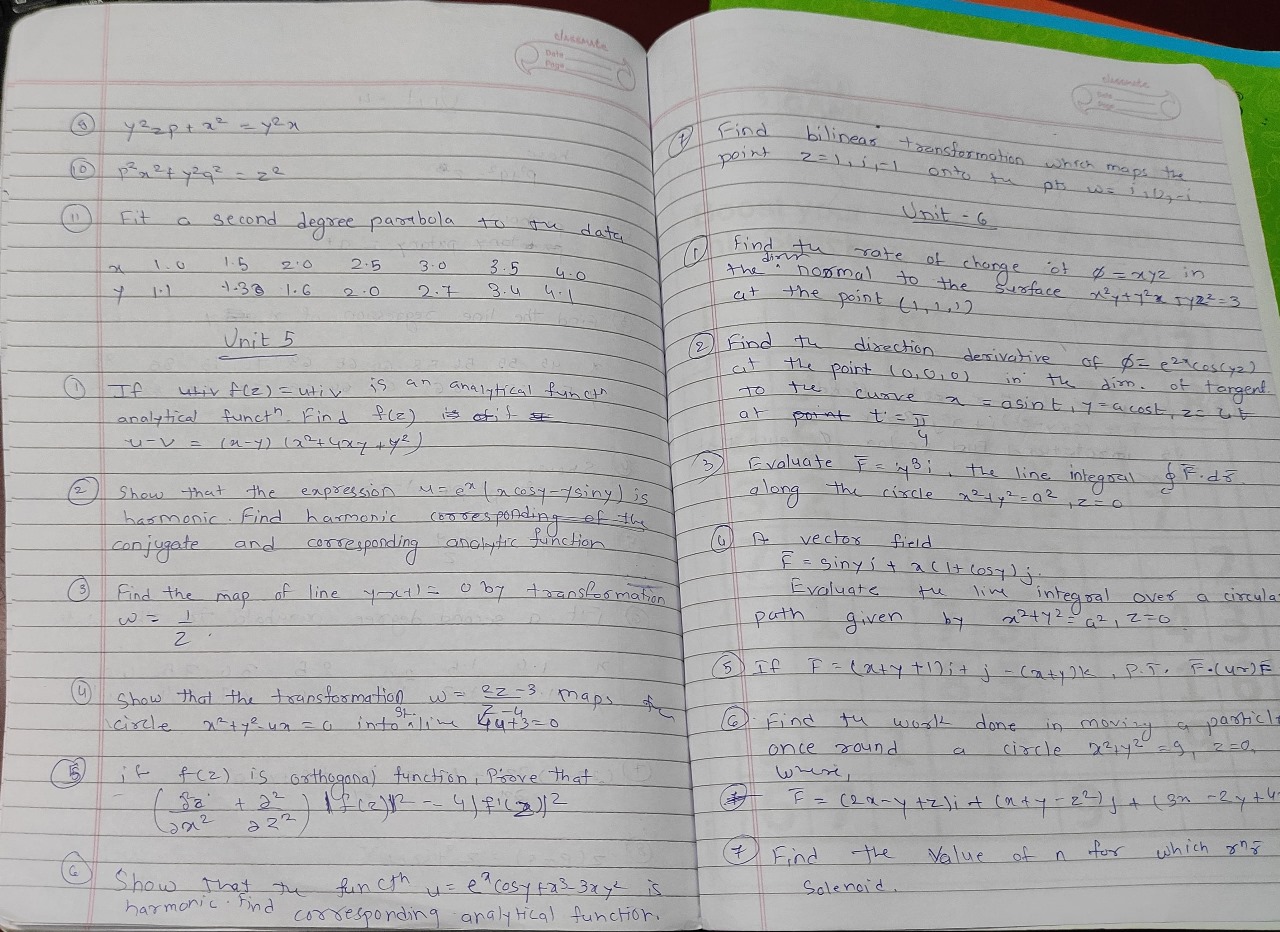 classmate
Date
Page
⑨ y²zp + x² = y²x
⑩ p²x² + y²q² = z²
⑪ Fit a second degree parabola to the data
x 1.0 1.5 2.0 2.5 3.0 3.5 4.0
y 1.1 1.3 1.6 2.0 2.7 3.4 4.1
Unit 5
① If u+iv f(z) = u+iv is an analytical functn
analytical functn. Find f(z) is of if
u-v = (x-y) (x²+4xy+y²)
② Show that the expression u = eˣ(x cosy - y siny) is
harmonic. Find harmonic corresponding of the
conjugate and corresponding analytic function
③ Find the map of line y-x+1 = 0 by transformation
w = 1/z.
④ Show that the transformation w = 2z-3/z-4 maps the
circle x²+y²-4x = 0 into st. line 4u+3=0
⑤ if f(z) is orthogonal function, Prove that
(∂²/∂x² + ∂²/∂z²) |f(z)|² = 4|f'(z)|²
⑥ Show that the functn u = eˣcosy + x³-3xy² is
harmonic. Find corresponding analytical function.
classmate
Date
Page
⑦ Find bilinear transformation which maps the
point z=1, i, -1 onto the pts w = i, 0, -i
Unit - 6
① Find the rate of change of ϕ = xyz in
the dirn normal to the surface x²y+y²x+yz²=3
at the point (1,1,1)
② Find the direction derivative of ϕ = e²ˣcos(yz)
at the point (0,0,0) in the dirn. of tangent
To the curve x = asint, y=acost, z= at
at point t = π/4
3 Evaluate F̄ = y³i, the line integral ∮c F̄.dr̄
along the circle x²+y²=a², z=0
④ A vector field
F̄ = siny i + x(1+cosy)j.
Evaluate the line integral over a circula
path given by x²+y²=a², z=0
⑤ If F̄ = (x+y+1)i + j - (x+y)k, P.T. F̄.(ur)F̄
⑥ Find the work done in moving a particl
once round a circle x²+y²=9, z=0,
where,
F̄ = (2x-y+z)i + (x+y-z²)j + (3x-2y+4
⑦ Find the value of n for which rⁿr̄
Solenoid.